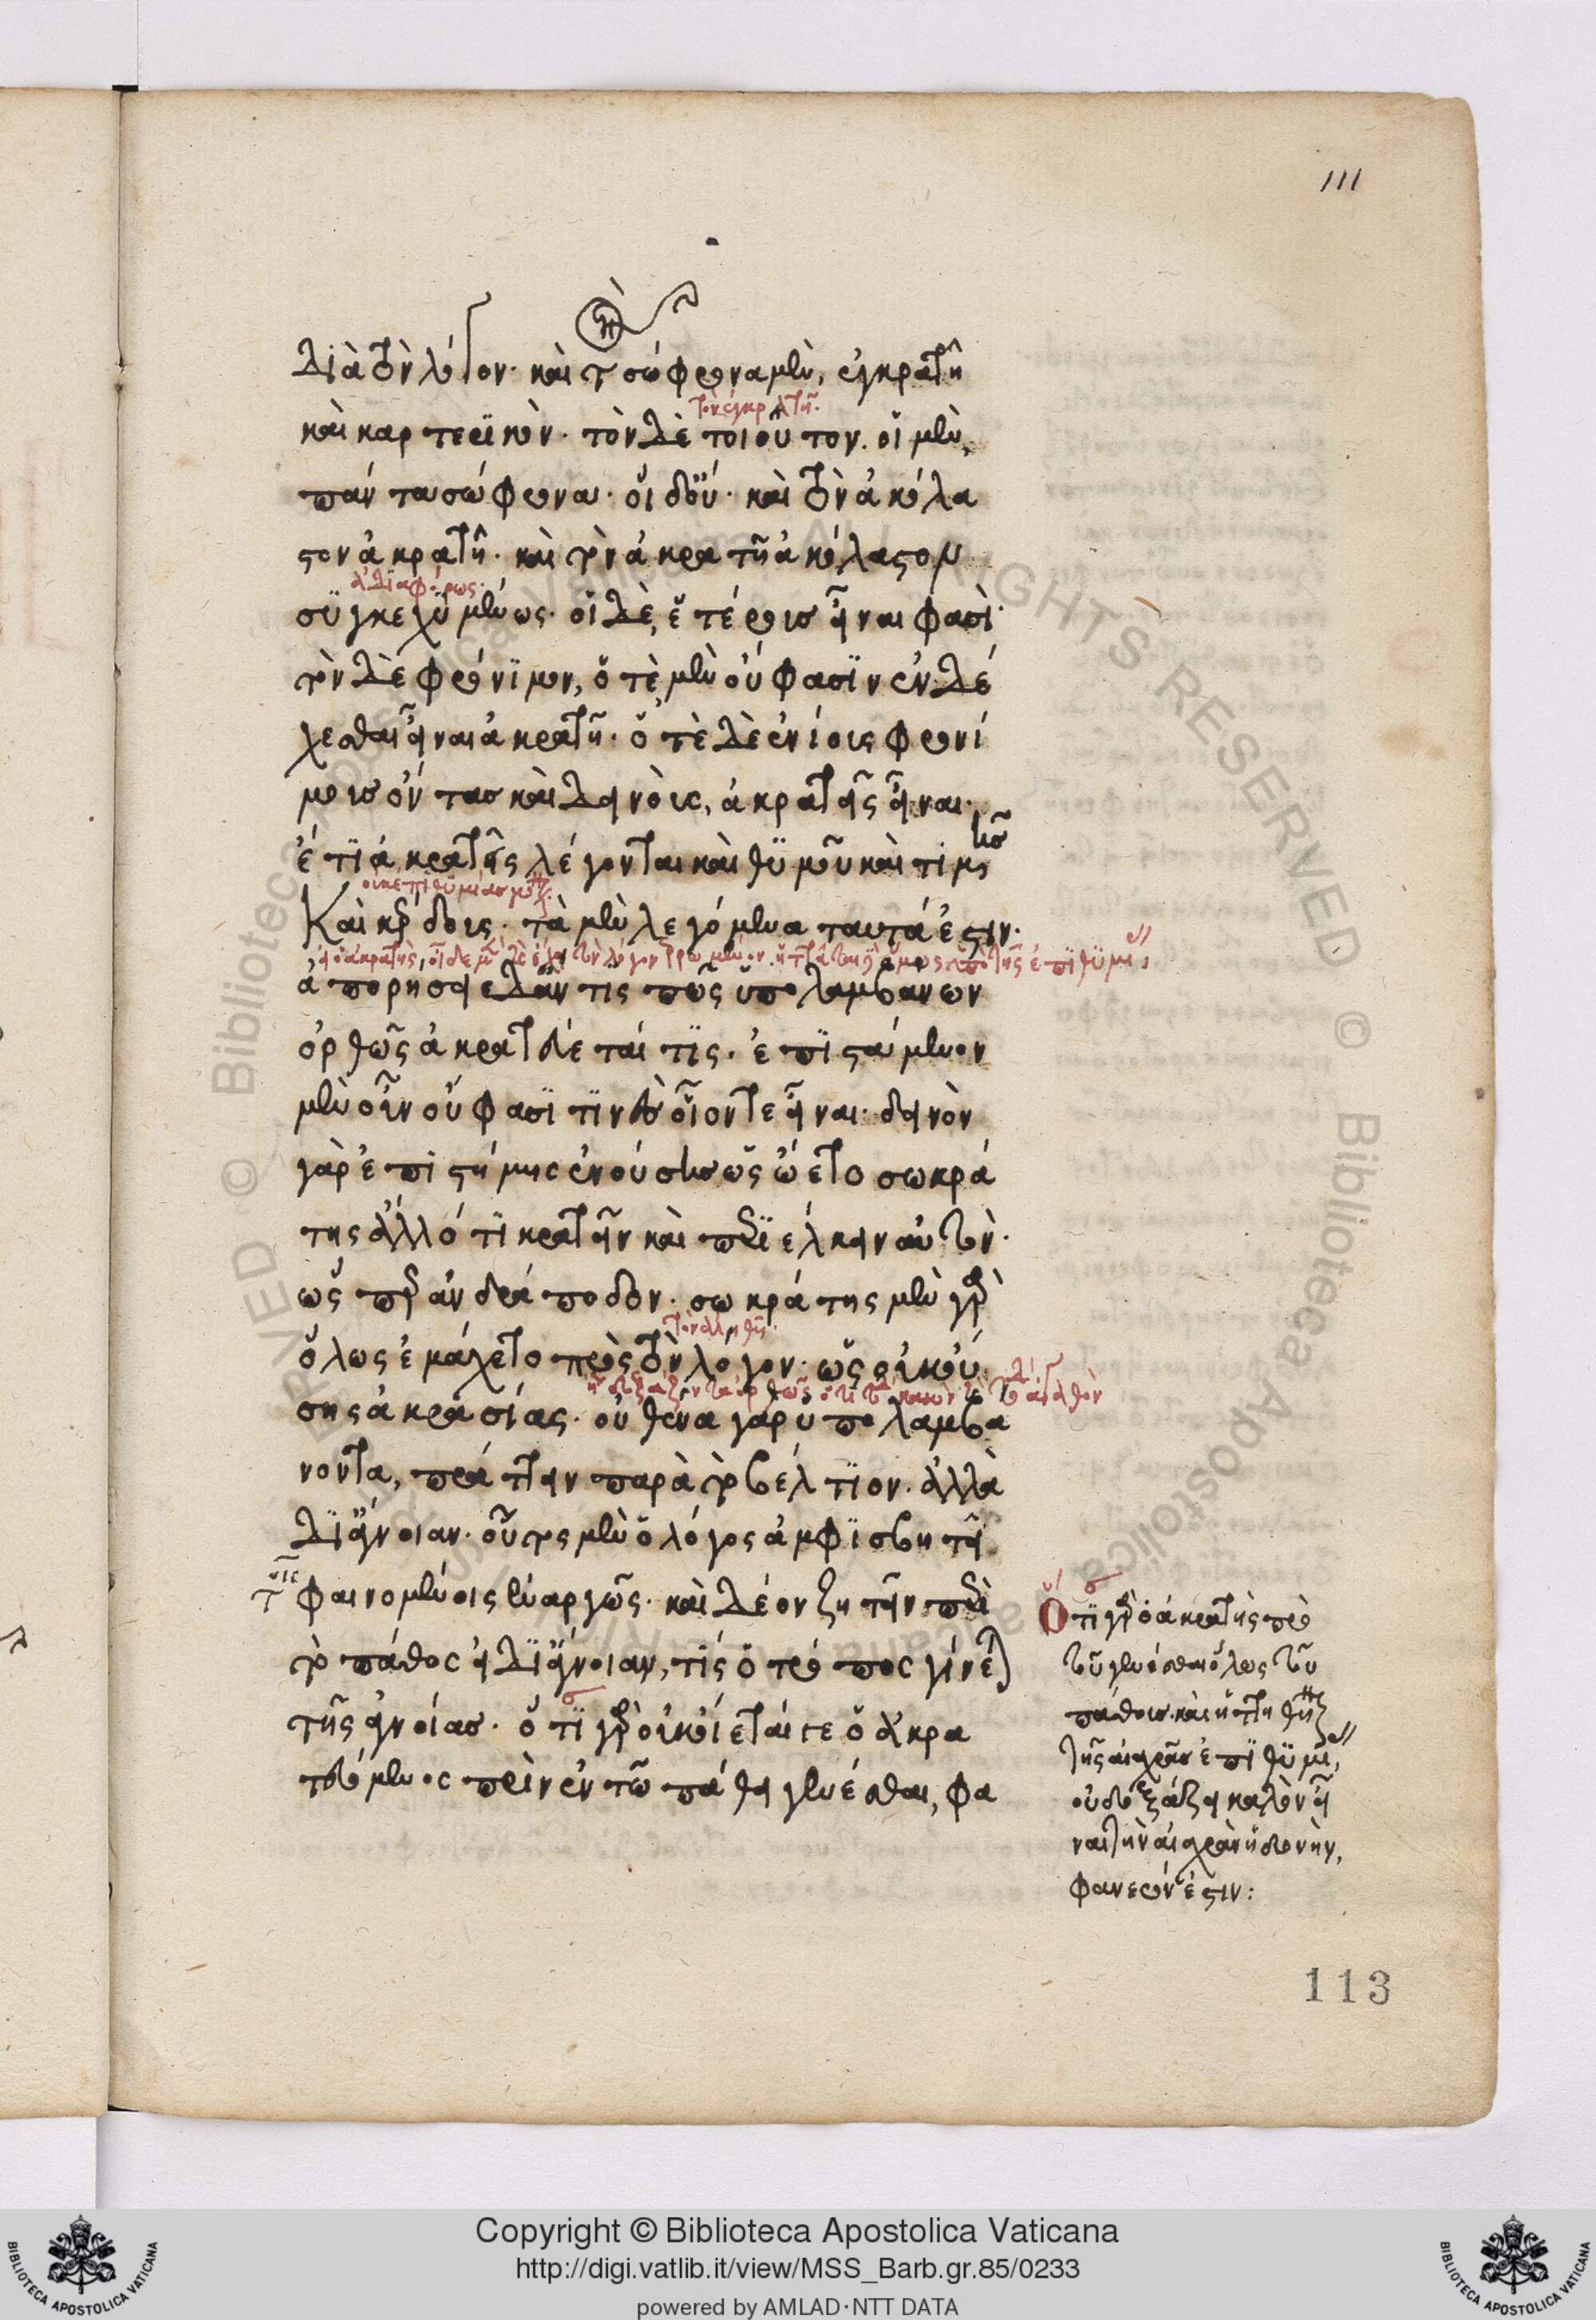 111
διὰ τὸν λόγον· καὶ τὸ σώφρονα μὲν, ἐγκρατῆ
τὸν ἐγκρατῆ·
καὶ καρτερικὸν· τὸν δὲ τοιοῦτον. οἱ μὲν,
πάντα σώφρονα· οἱ δ' οὔ· καὶ τὸν ἀκόλα
στον ἀκρατῆ· καὶ τὸν ἀκρατῆ ἀκόλαστον
ἀδιαφόρως·
συγκεχυμένως· οἱ δὲ, ἑτέρους εἶναι φασὶ·
τὸν δὲ φρόνιμον, ὁτὲ μὲν οὔ φασιν ἐνδέ
χεσθαι εἶναι ἀκρατῆ· ὁτὲ δὲ ἐνίους φρονί
μους ὄντας καὶ δεινοὺς, ἀκρατεῖς εἶναι·
ἔτι ἀκρατεῖς λέγονται καὶ θυμοῦ καὶ τιμῆς
καὶ κέρδους· τὰ μὲν λεγόμενα ταῦτά ἐστιν·
ἀπορήσειε δ' ἄν τις πῶς ὑπολαμβάνων
ὀρθῶς ἀκρατεύεταί τις· ἐπιστάμενον
μὲν οὖν οὔ φασί τινες οἷόν τε εἶναι· δεινὸν
γὰρ ἐπιστήμης ἐνούσης ὡς ᾤετο σωκρά
της ἄλλό τι κρατεῖν καὶ περιέλκειν αὐτὸν·
ὥσπερ ἀνδράποδον· σωκράτης μὲν γὰρ
τὸν ἀληθῆ·
ὅλως ἐμάχετο πρὸς τὸν λόγον· ὡς οὐκ οὔ
σης ἀκρασίας· οὐθένα γὰρ ὑπολαμβά
νοντα, πράττειν παρὰ τὸ βέλτιον· ἀλλὰ
δι' ἄγνοιαν· οὗτος μὲν ὁ λόγος ἀμφισβητεῖ
τοῖς φαινομένοις ἐναργῶς· καὶ δέον ζητεῖν περὶ
τὸ πάθος εἰ δι' ἄγνοιαν, τίς ὁ τρόπος γίνεται
τῆς ἀγνοίας· ὅτι γὰρ οὐκ οἴεταί γε ὁ ἀκρα
τευόμενος πρὶν ἐν τῷ πάθει γενέσθαι, φα
Ὅτι γὰρ ὁ ἀκρατὴς πρὸ
τοῦ γενέσθαι ὅλως τοῦ
πάθους· καὶ ἡττηθῆναι
τῆς αἰσχρᾶς ἐπιθυμίας,
οὐ δοξάζει καλὸν εἶ
ναι τὴν αἰσχρὰν ἡδονὴν,
φανερόν ἐστιν:
113
Copyright © Biblioteca Apostolica Vaticana
http://digi.vatlib.it/view/MSS_Barb.gr.85/0233
powered by AMLAD·NTT DATA
BIBLIOTECA APOSTOLICA VATICANA
BIBLIOTECA APOSTOLICA VATICANA